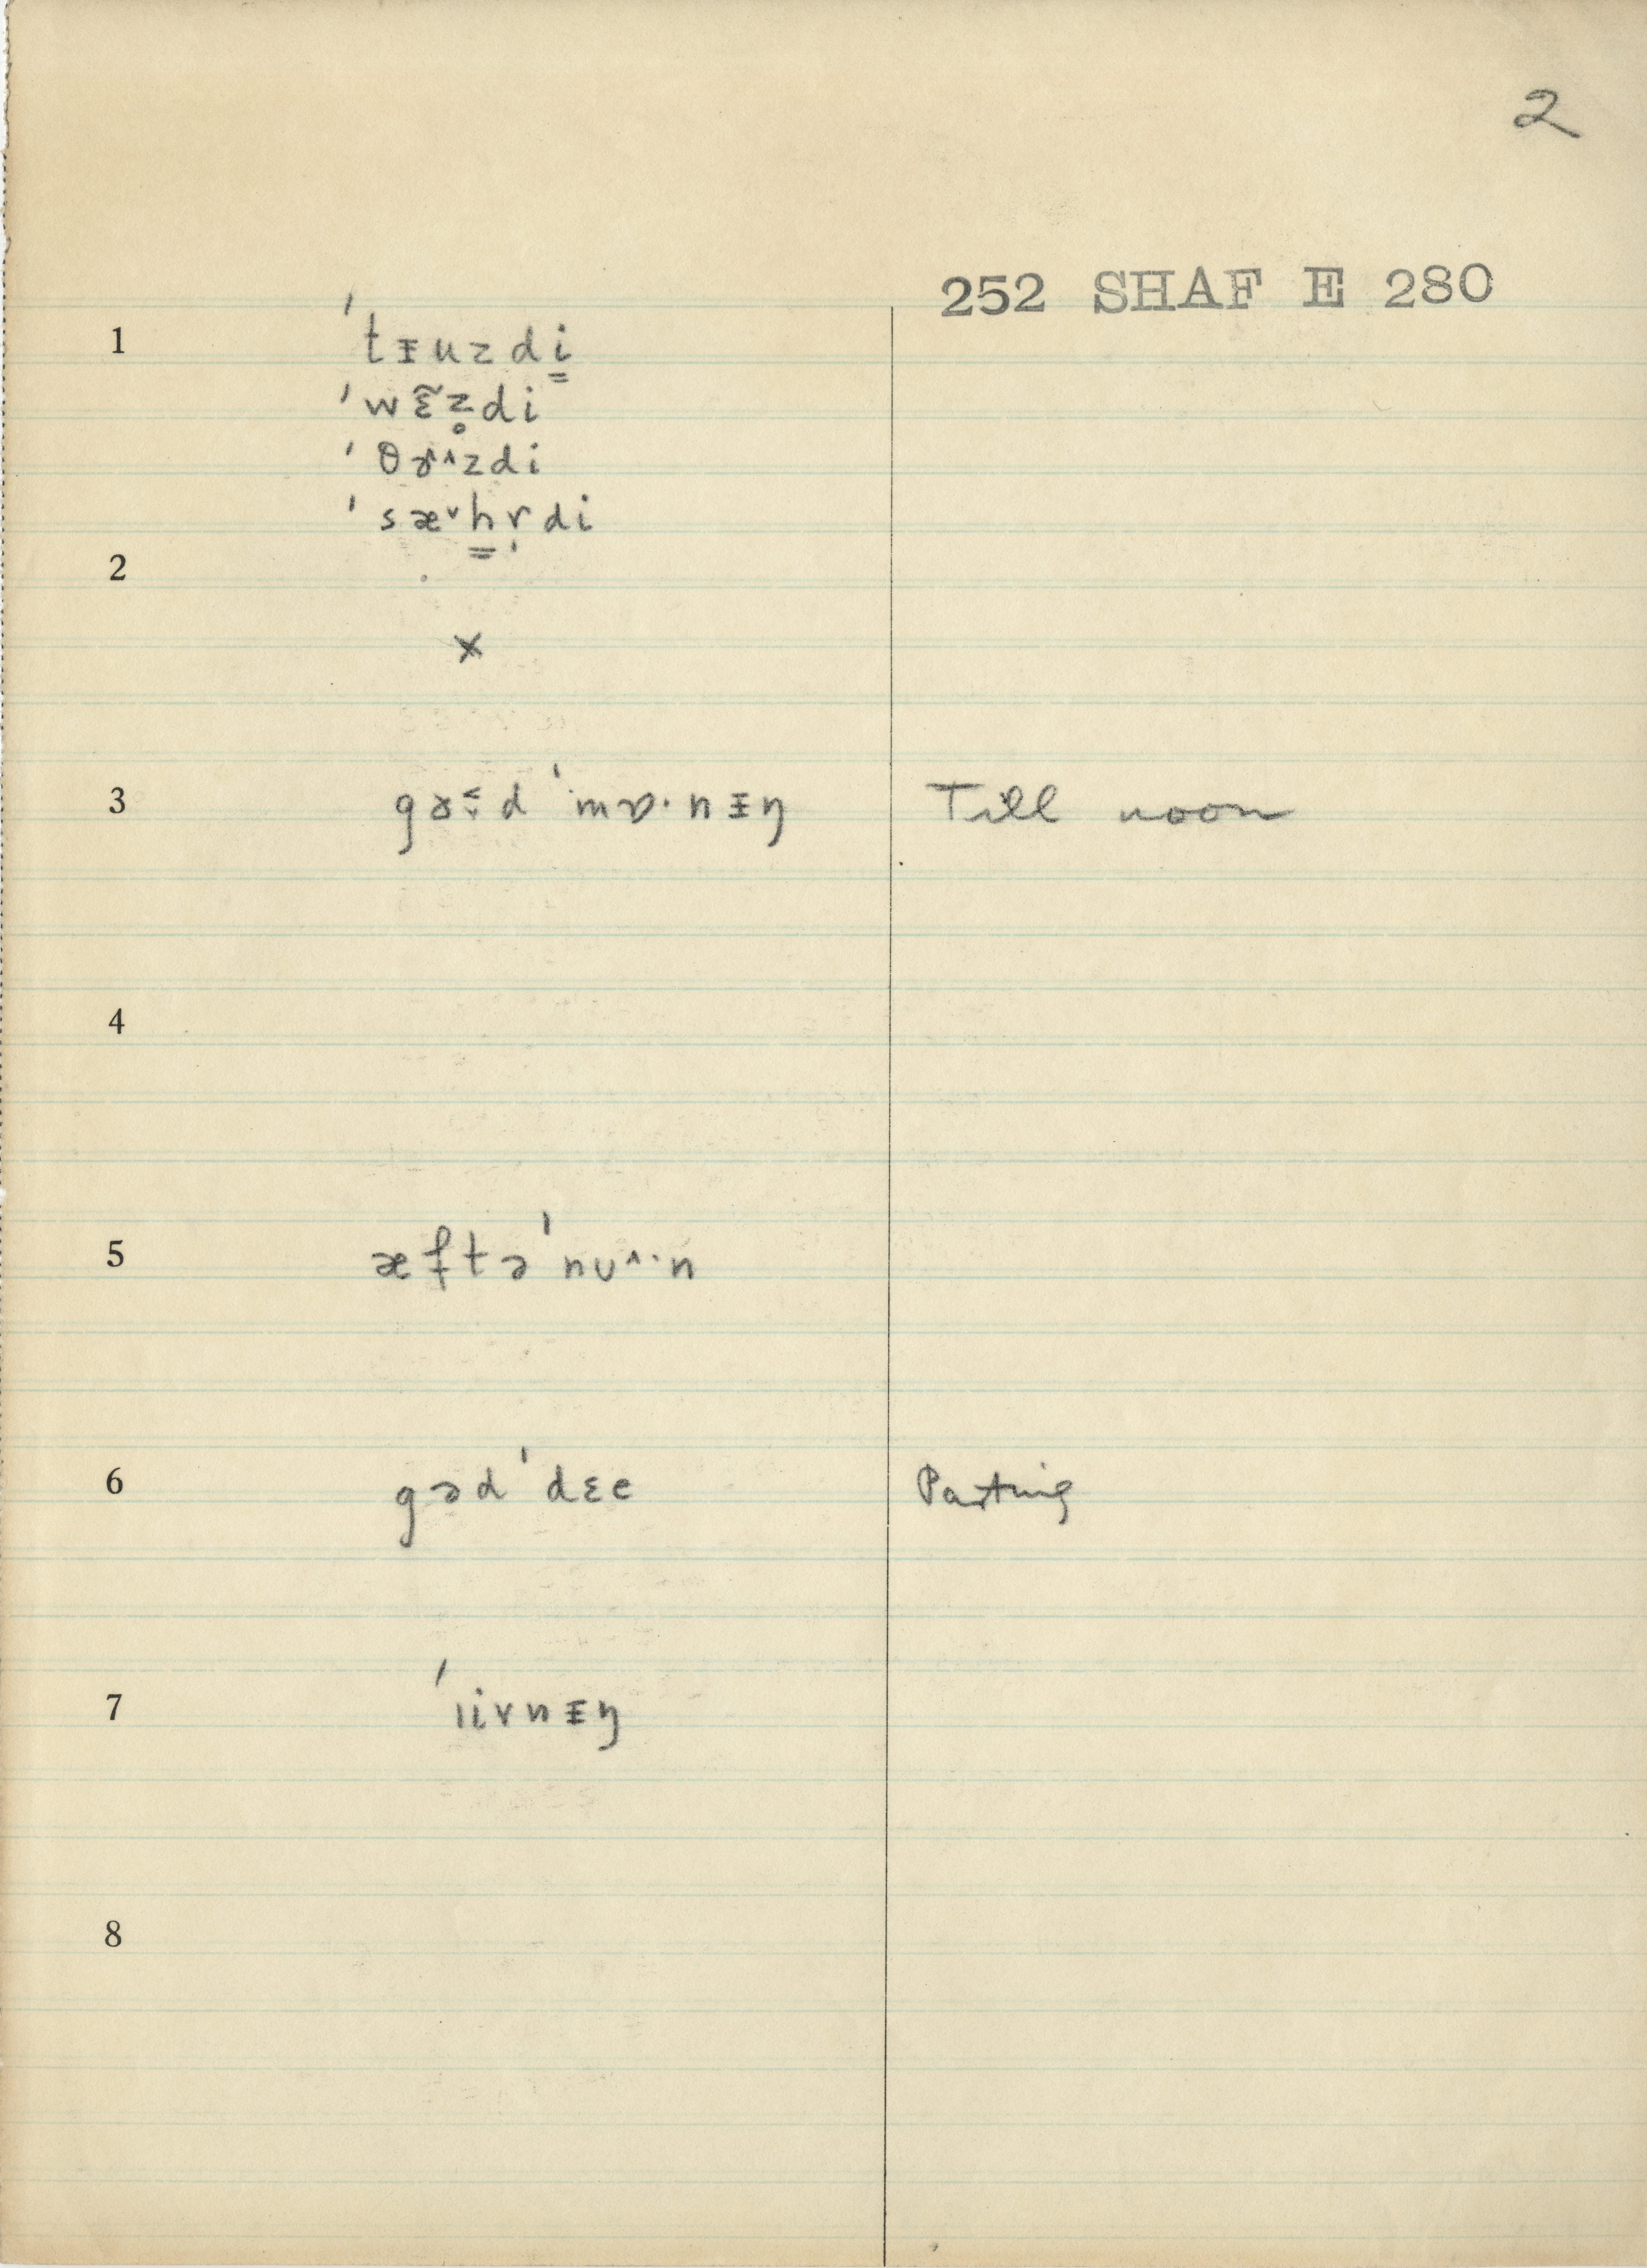 2
252 SHAF E 280
1 ˈtɪ̵uzdi̳
ˈwɛ̃z̥di
ˈθɤ˄zdi
ˈsæ˅h̳r̩di
2
×
3 ˈmɒ·nɪ̵ŋ Till noon
4
5 æftəˈnʊ˄·n
6 gədˈdɛe Parting
7 ˈivnɪ̵ŋ
8